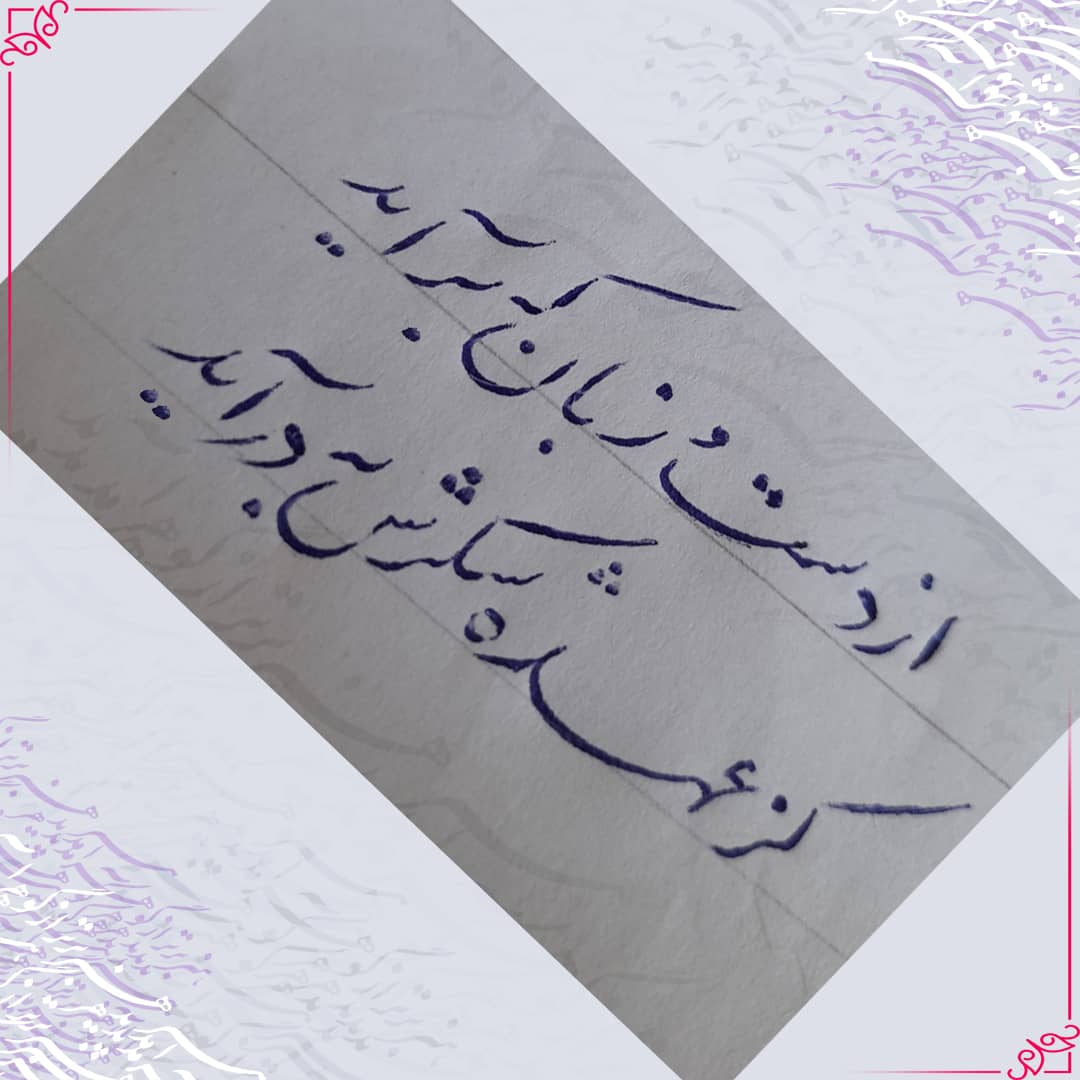 از دست و زبان که برآید
کز عهده شکرش به درآید